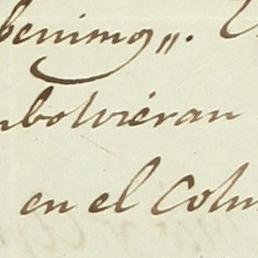 benimo„.
nbolviéran
en el Colu